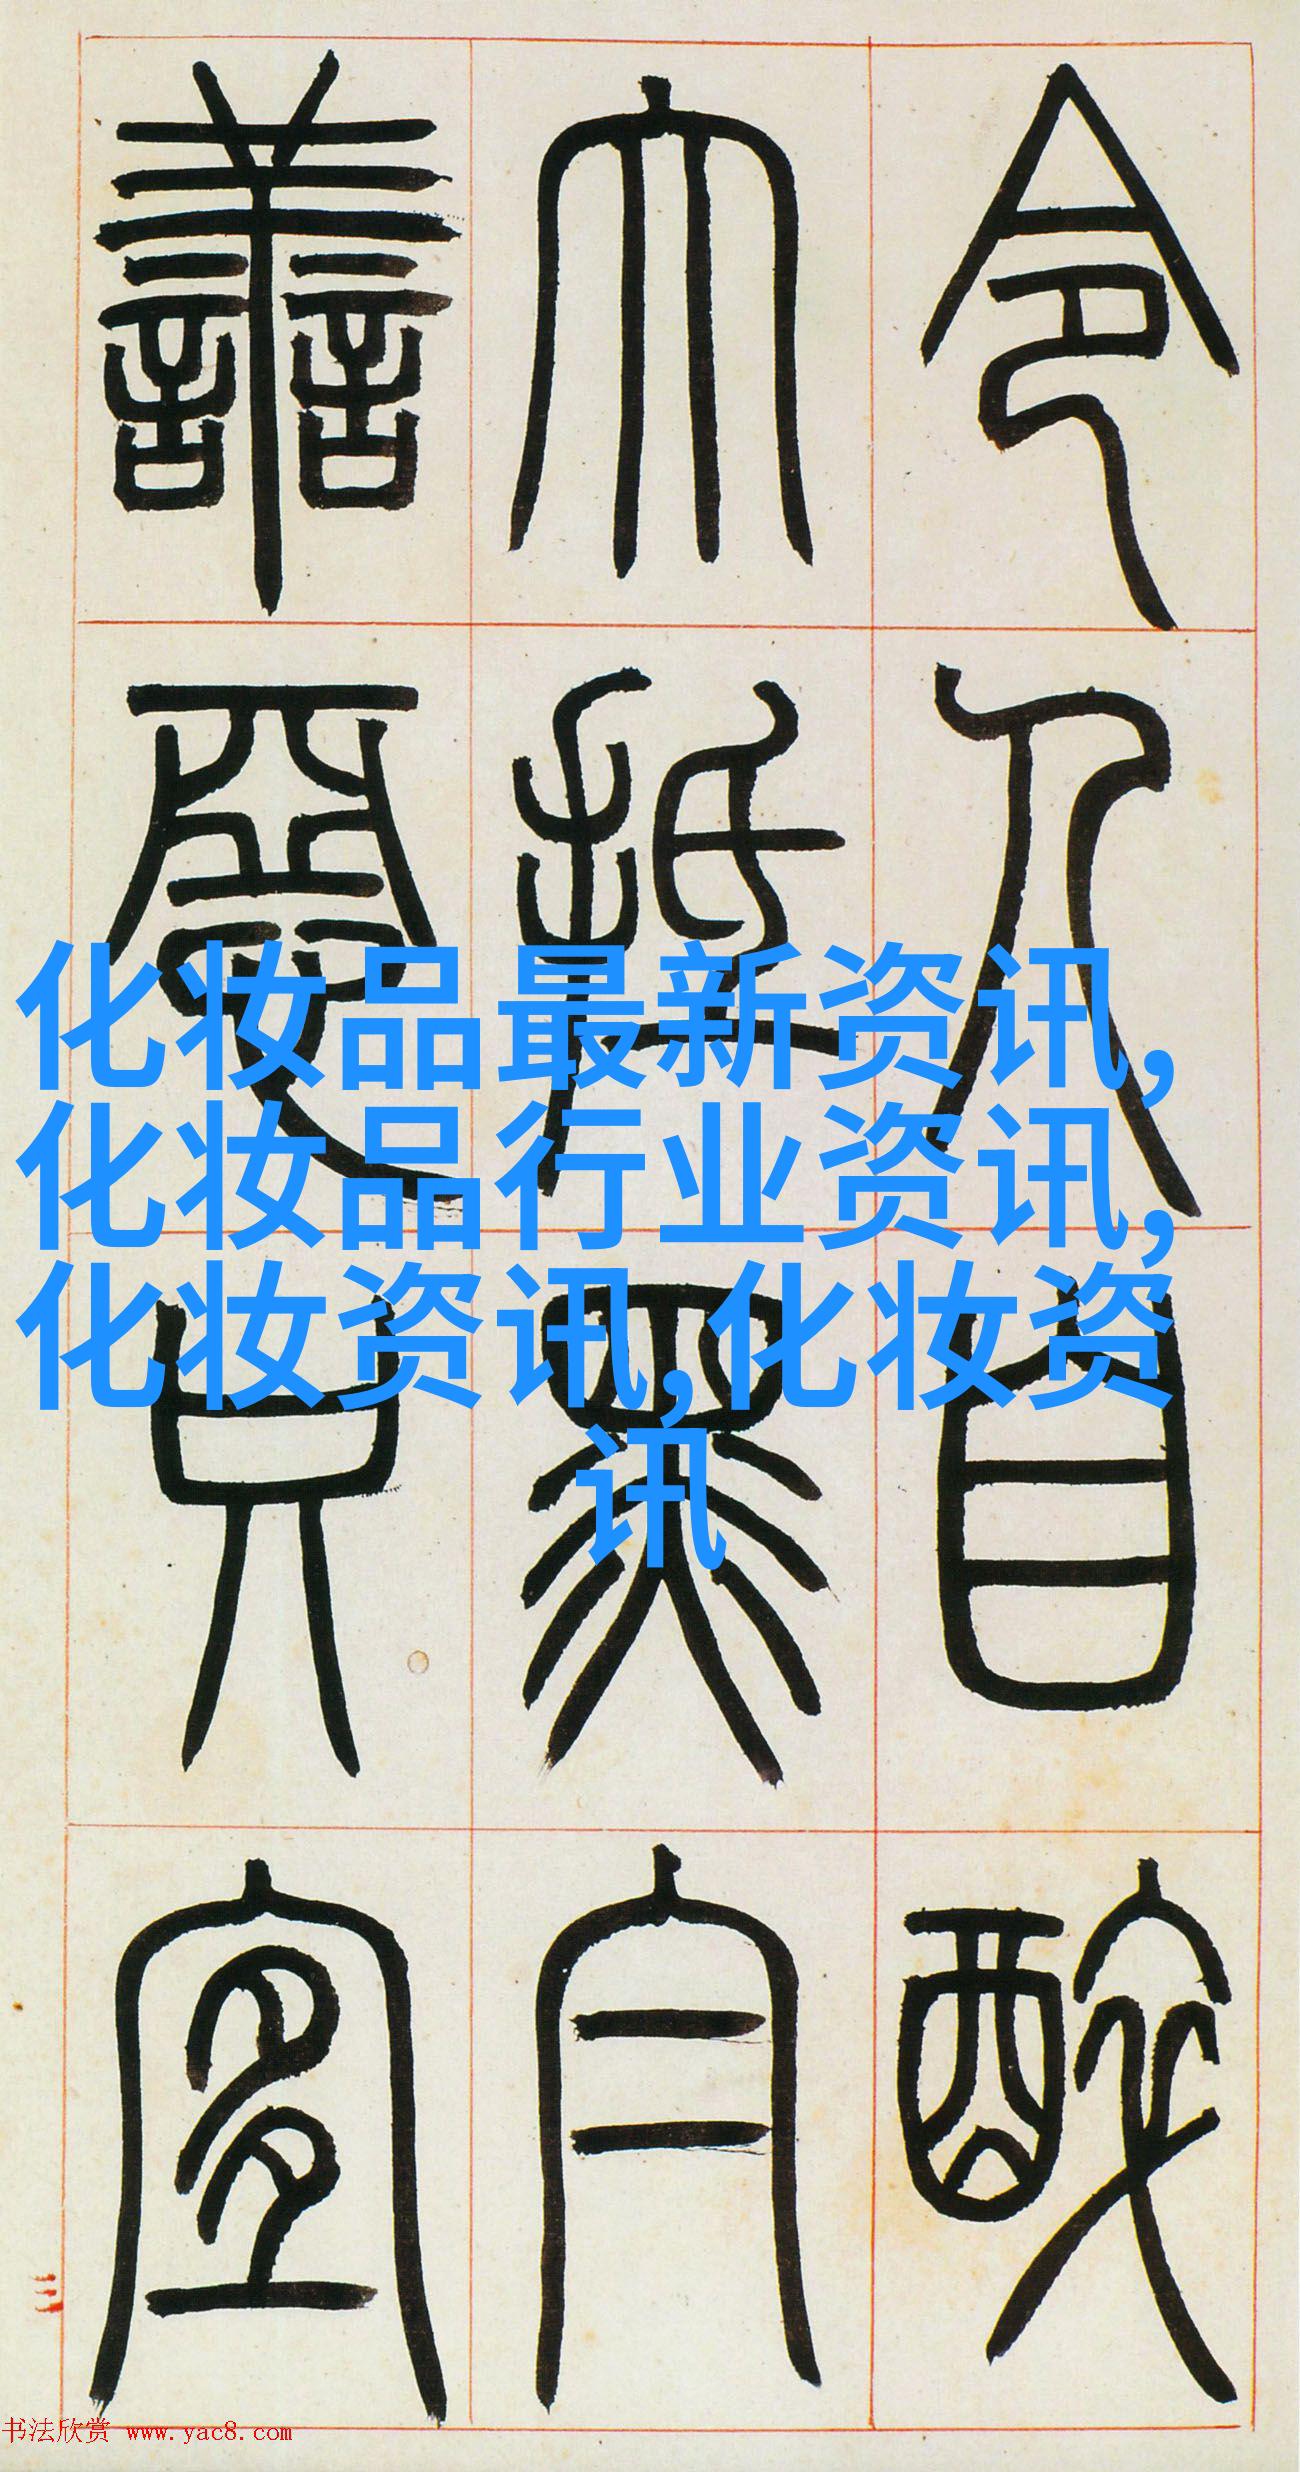 令人自醉
大抵
善只宜
化妆品最新资讯,
化妆品行业资讯,
化妆资讯,化妆资
讯
三
书法欣赏 www.yac8.com